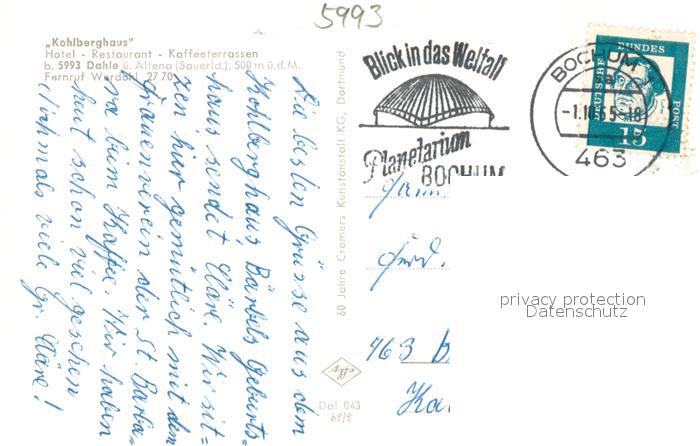 5993
„Kohlberghaus"
Hotel - Restaurant - Kaffeeterrassen
b. 5993 Dahle ü. Altena (Sauerld.), 500 m ü.d.M.
Fernruf Werdohl 27 70
Die besten Grüsse aus dem
Kohlberghaus Bärbels Geburts=
haus sendet Cläre. Wir sit=
zen hier gemütlich mit dem
Frauenverein der St. Barba=
ra beim Kaffee. Wir haben
heut schon viel gesehen
Nochmals viele Gr. Cläre!
60 Jahre Cramers Kunstanstalt KG, Dortmund
Dal 043
Blick in das Weltall
Planetarium
BOCHUM
BOCHUM
-1.10.65-18
463
DEUTSCHE BUNDESPOST
15
463 B
privacy protection
Datenschutz